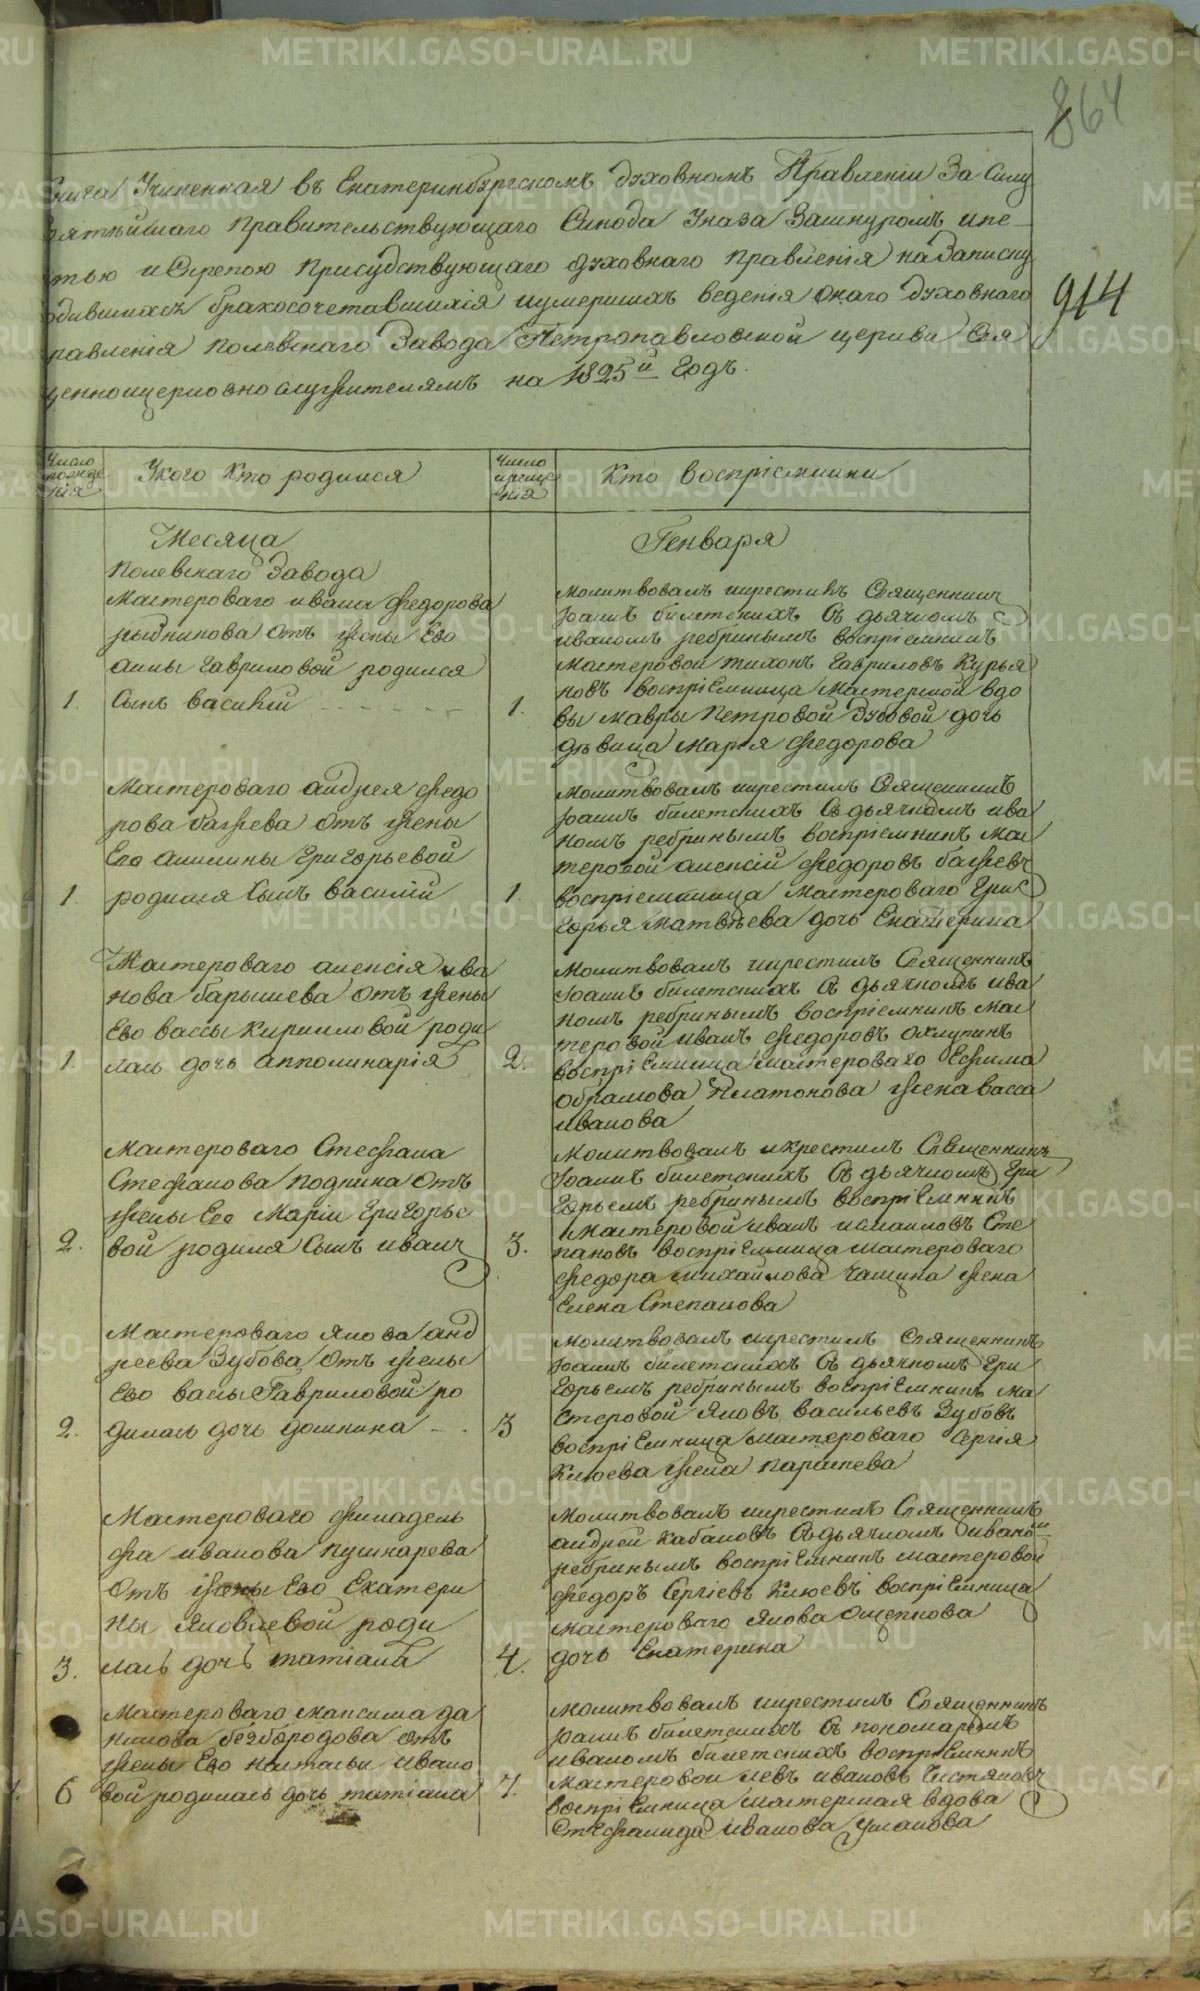 864
914
Книга Учиненная въ Екатеринбургскомъ духовномъ Правленіи За Силу
вятѣйшаго Правительствующаго Синода Указа Зашнуромъ ипе-
тью иСкрепою Присудствующаго духовнаго Правленія наЗаписку
одившихся бракосочетавшихся иумершихъ веденія Онаго духовнаго
равленія Полевскаго Завода Петропавловской церкви Свя
ценноицерковнослужителямъ на 1825й Годъ.
Число рожде нія
Укого Кто родился
Число креще нія
Кто воспріемники
Месяца
Генваря
Полевскаго Завода
Мастероваго ивана федорова
отъ жены Ево
анны гавриловой родился
1. Сынъ василій
1.
Молитвовалъ икрестилъ Священникъ
Іоаннъ билетскихъ Съ дьячкомъ
иваномъ ребринымъ воспріемникъ
мастеровой тихонъ гавриловъ Курья
новъ воспріемница мастерской вдо
вы мавры Петровой Зубовой дочь
дѣвица Марья федорова
Мастероваго андрея федо
рова бажева Отъ жены
Ево Акилины григорьевой
1. родился Сынъ василій
1.
Молитвовалъ икрестилъ Священникъ
Іоаннъ билетскихъ Съ дьячкомъ ива
номъ ребринымъ воспріемникъ мас
теровой алексій федоровъ бажевъ
воспріемница мастероваго гри
горья матвѣева дочь Екатерина
Мастероваго алексія ива
нова барышева Отъ жены
Ево вассы Кириловой роди
1. лась дочь апполинарія
2.
Молитвовалъ икрестилъ Священникъ
Іоаннъ билетскихъ Съ дьячкомъ ива
номъ ребринымъ воспріемникъ мас
теровой иванъ федоровъ охлупинъ
воспріемница мастероваго Ефима
обрамова Платонова жена васса
иванова
Мастероваго Стефана
Стефанова Отъ
жены Ево Маріи григорье
2. вой родился Сынъ иванъ
3.
Молитвовалъ икрестилъ Священникъ
Іоаннъ билетскихъ Съ дьячкомъ гри
горьемъ ребринымъ воспріемникъ
мастеровой иванъ исмаиловъ Сте
пановъ воспріемница мастероваго
федора михайлова чащина жена
Елена Степанова
Мастероваго Якова анд
реева Зубова Отъ жены
Ево васы гавриловой ро
2. дилась дочь домнина
3
Молитвовалъ икрестилъ Священникъ
Іоаннъ билетскихъ Съ дьячкомъ гри
горьемъ ребринымъ воспріемникъ ма
стеровой Яковъ васильевъ Зубовъ
воспріемница мастероваго Сергія
Клюева жена
Мастероваго филадель
фа иванова пушкарева
Отъ жены Ево Екатери
ны Яковлевой роди
3. лась дочь татіана
4.
Молитвовалъ икрестилъ Священникъ
андрей кабаковъ Съдьячкомъ иваномъ
ребринымъ воспріемникъ мастеровой
федоръ Сергіевъ Клюевъ воспріемница
мастероваго Якова Ощепкова
дочь Екатерина
Мастероваго максима да
нилова безбородова отъ
жены Ево натальи ивано
6 вой родилась дочь татіана
7.
Молитвовалъ икрестилъ Священникъ
Іоаннъ билетскихъ Съ пономаремъ
иваномъ билетскихъ воспріемникъ
мастеровои левъ ивановъ Чистяковъ
воспріемница мастерская вдова
Стефанида иванова ушакова
METRIKI.GASO-URAL.RU